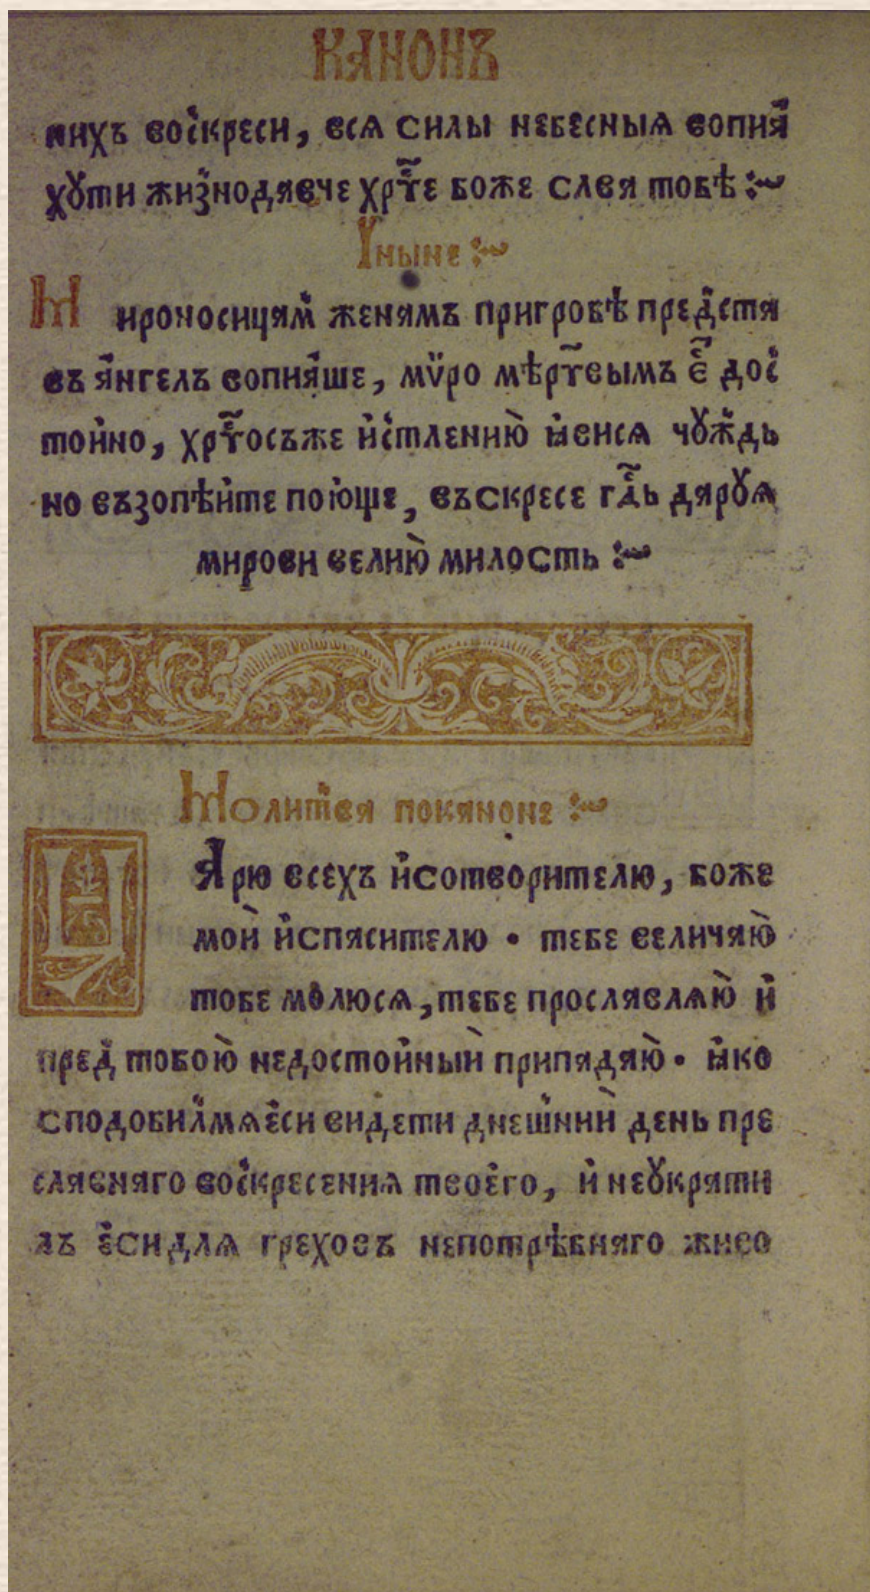 КАНОНЪ
нихъ воск҃реси, вся силы небесныꙗ вопиꙗ
хꙋти жизнодавче хрⷭ҇те боже слава тобѣ :~
Іныне :~
Мироносицам женамъ пригробѣ предⸯста
въ а҆нгелъ вопиа҆ше, мѵро мѣртⷡ҇ымъ е҆҃ дос
тои҆но, хрⷭ҇тосъже и҆стлению̀ ꙗ҆висѧ чꙋждь
но възопѣи҆те пою҆ще, въскресе гдⷭ҇ь дарꙋѧ
мирови велию̀ милость :~
Молитва поканоне :~
Царю всехъ и҆сотворителю, боже
мои҆ и҆спасителю • тебе величаю̀
тобе мⷪ҇люсѧ, тебе прославлѧю̀ и҆
пред тобою̀ недостои҆ныи҆ припадаю̀ • ꙗ҆ко
сподобилмѧе҆си видети днешнии҆ день пре
славнаго воскресениѧ твое҆го, и҆ неꙋкрати
лъ е҆си длѧ греховъ непотрѣбнаго живо